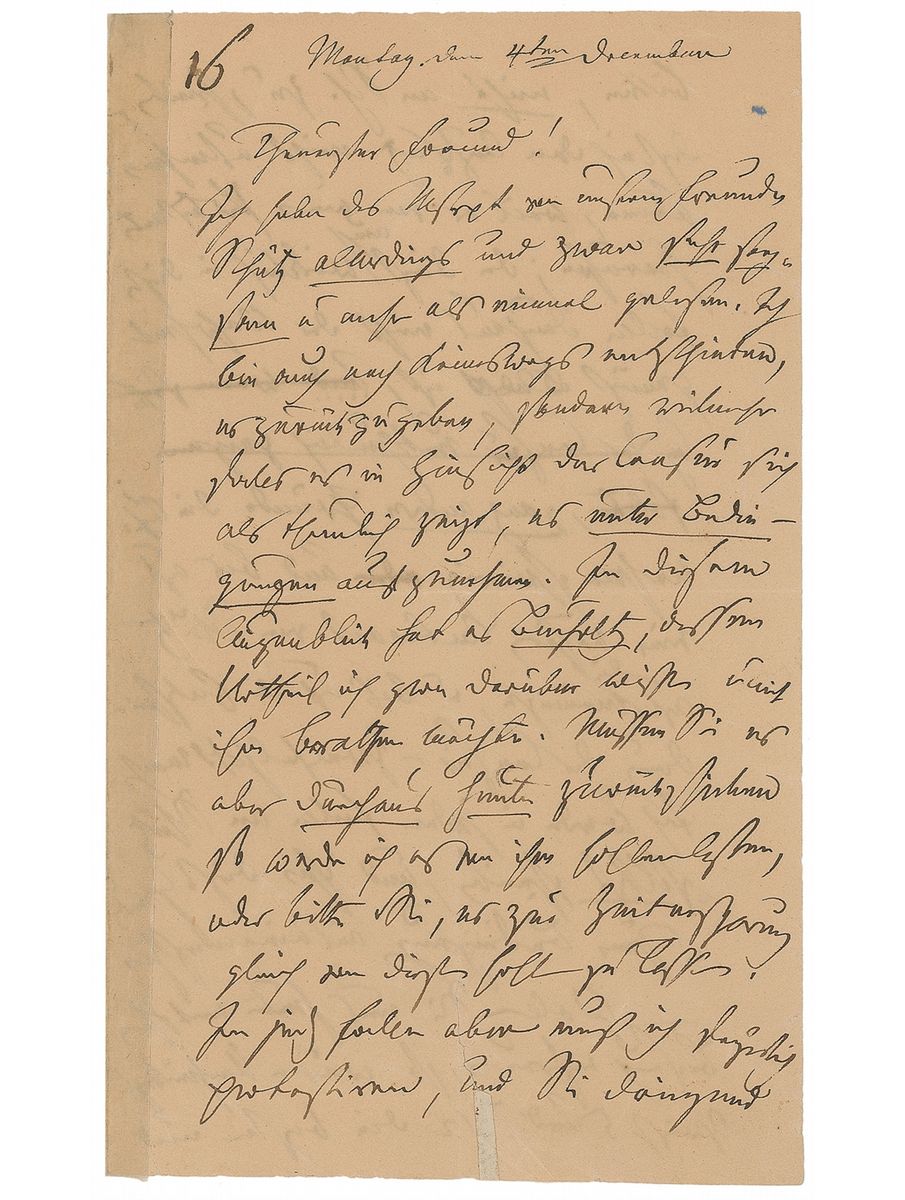 16
Montag. den 4ten December
Theuerster Freund!
Ich habe das Mscpt von unserm Freunde
Schütz allerdings und zwar sehr
u mehr als einmal gelesen. Ich
bin auch noch keineswegs entschieden,
es zurückzugeben, sondern vielmehr
es in Hinsicht der Censur sich
als thunlich zeigt, es unter Bedin-
gungen aufzunehmen. In diesem
Augenblick hat es , dessen
Urtheil ich gern darüber wissen u mit
ihm berathen möchte. Müssen Sie es
aber durchaus heute zurückziehen
so werde ich es von ihm holen lassen,
oder bitte Sie, es zur Zeitersparung
gleich von dieser holen zu lassen.
In jed Falle aber muß ich
protestiren, und Sie dringend